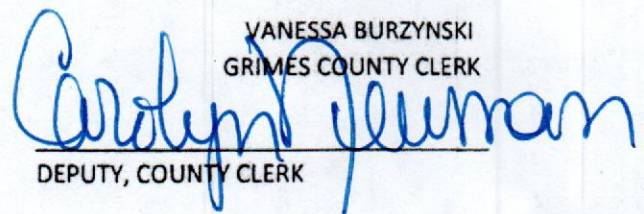 VANESSA BURZYNSKI
GRIMES COUNTY CLERK
Carolyn Neuman
DEPUTY, COUNTY CLERK